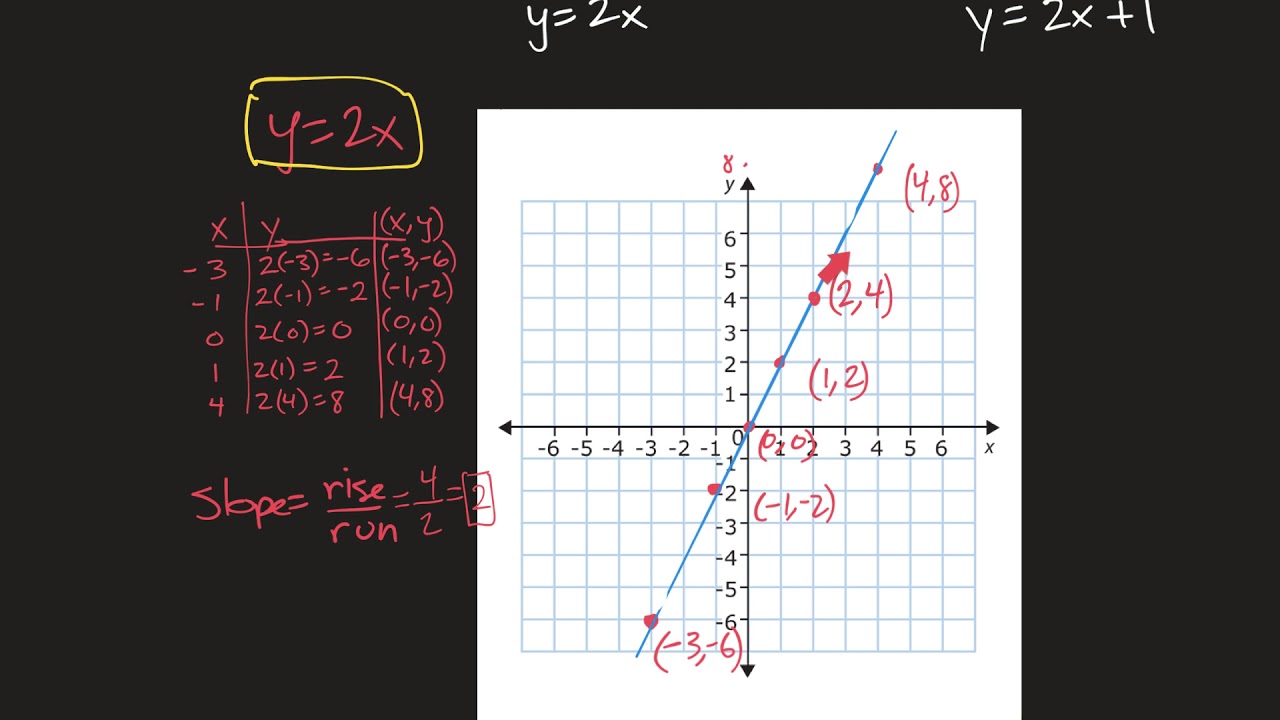 y=2x
y=2x+1
y=2x
x y (x,y)
-3 2(-3)=-6 (-3,-6)
-1 2(-1)=-2 (-1,-2)
0 2(0)=0 (0,0)
1 2(1)=2 (1,2)
4 2(4)=8 (4,8)
Slope= rise/run = 4/2 = 2
8
y
(4,8)
6
5
4
(2,4)
3
2
(1,2)
1
0
-6 -5 -4 -3 -2 -1 1 2 3 4 5 6 x
(0,0)
-1
-2
(-1,-2)
-3
-4
-5
-6
(-3,-6)